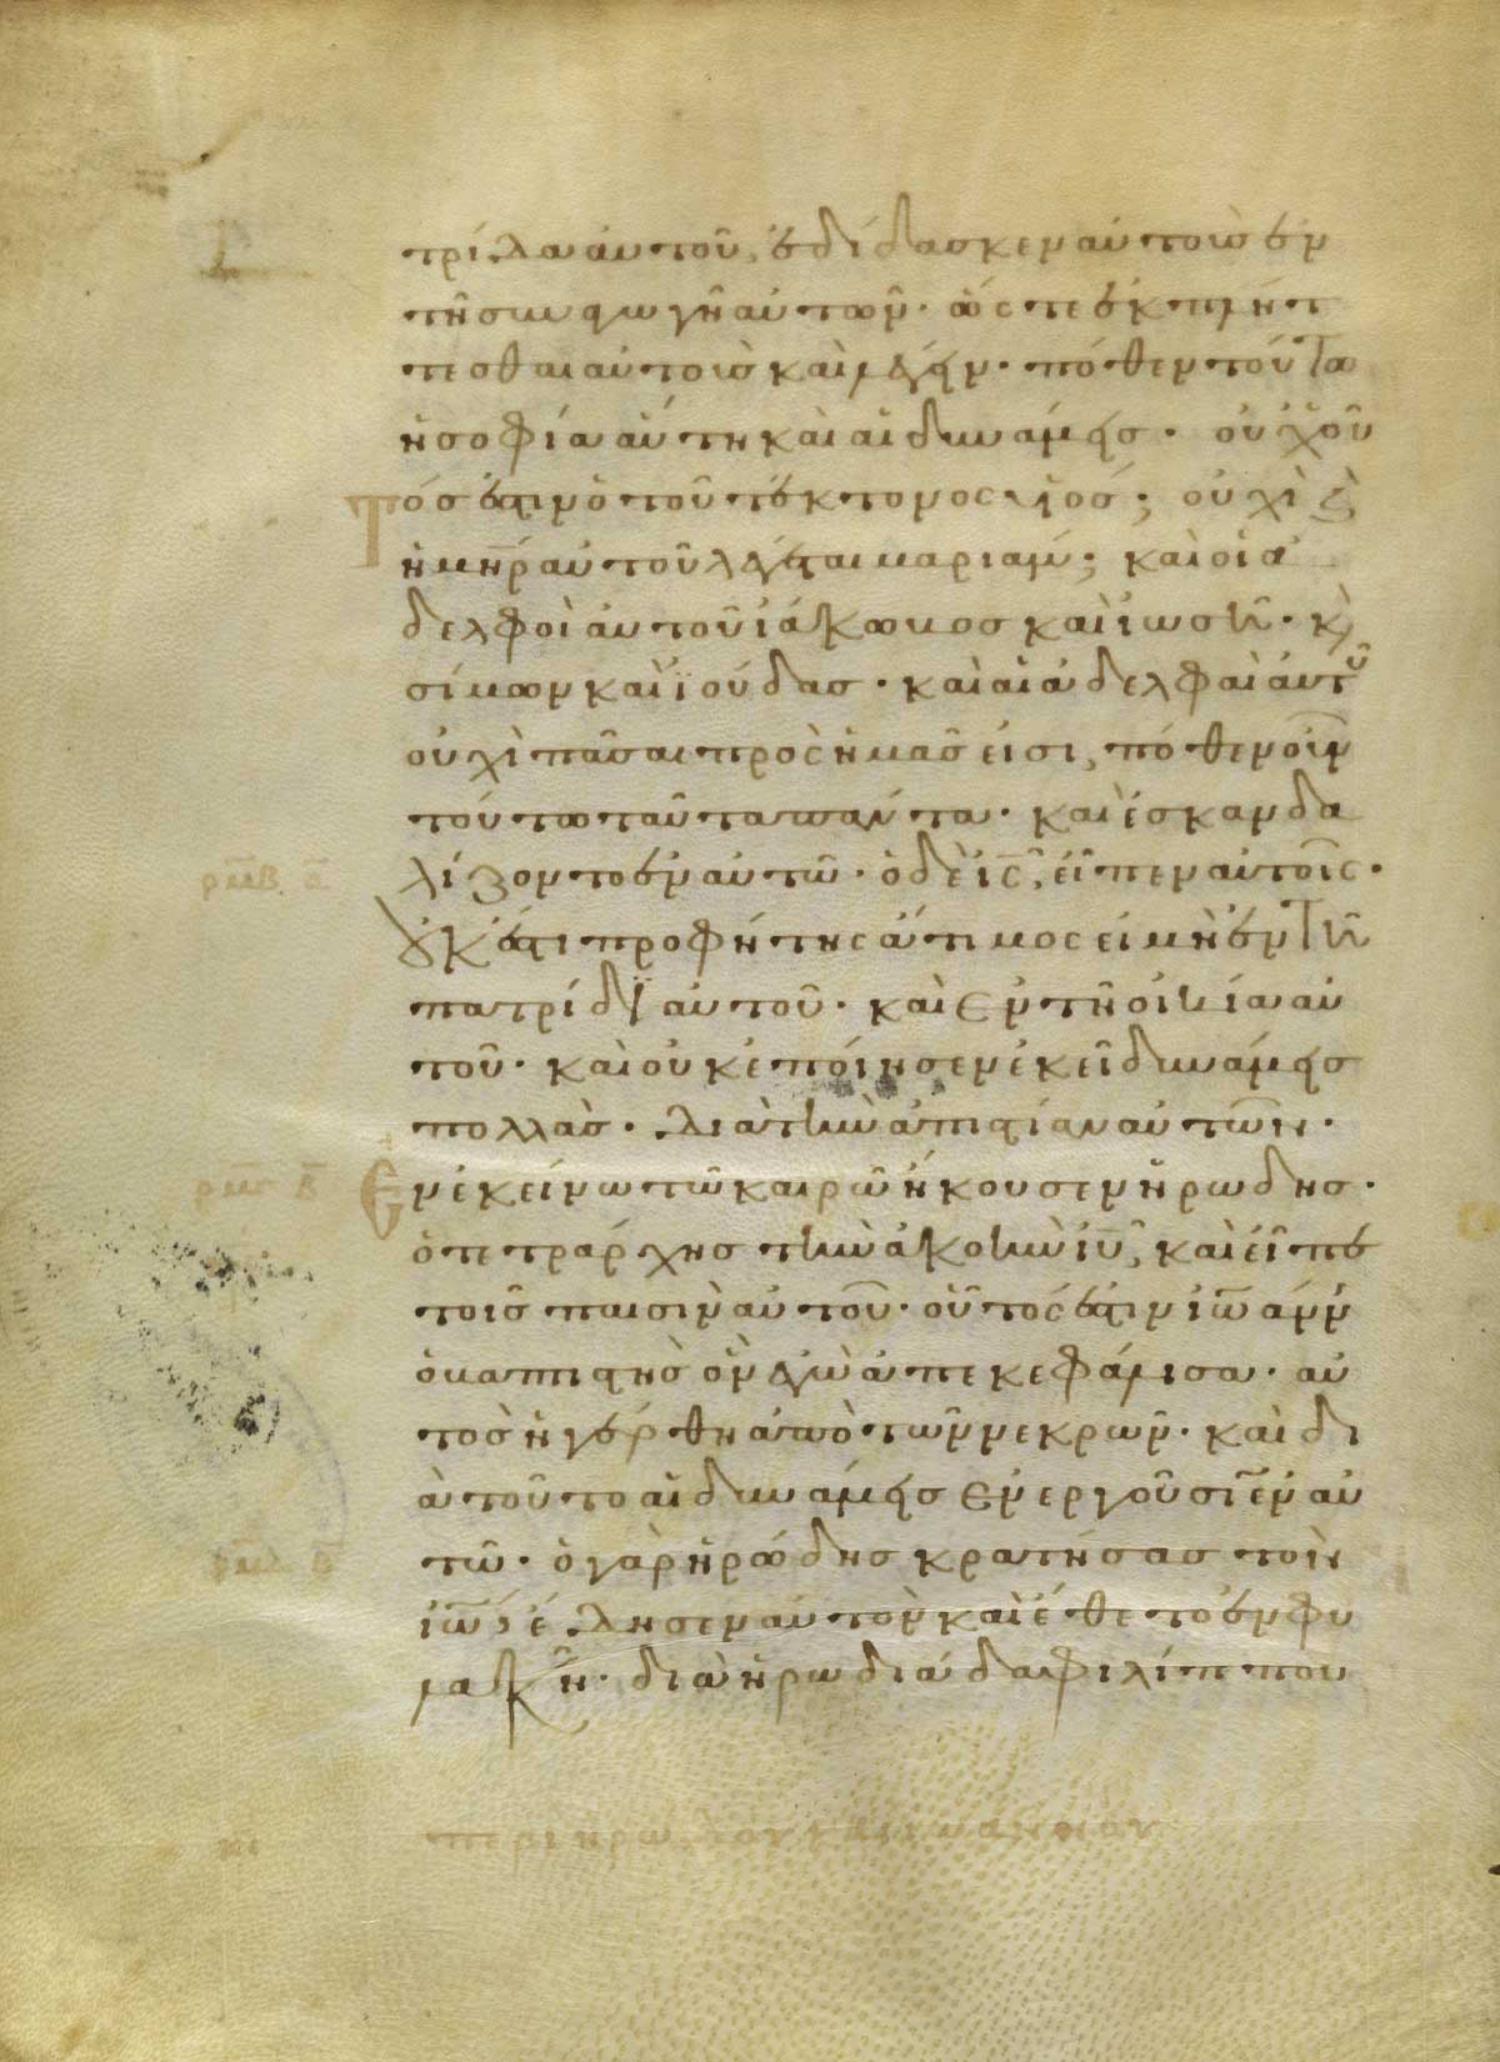 τρίδα αυτοῦ, ἐδίδασκεν αὐτοὺς ἐν
τῆ συναγωγῆ αὐτῶν· ὥστε ἐκπλήτ
τεσθαι αὐτοὺς καὶ λέγειν· πόθεν τούτω
ἡ σοφία αὕτη καὶ αἱ δυνάμεις· οὐχ οὗ
τός ἐστιν ὁ τοῦ τέκτονος υἱός; οὐχὶ
ἡ μη̅ρ αὐτοῦ λέγεται μαριάμ; καὶ οἱ ἀ
δελφοὶ αὐτοῦ ἰάκωβος καὶ ἰωσῆ· κ̀
σίμων καὶ ϊούδας· καὶ αἱ ἀδελφαὶ αὐτ
οὐχὶ πᾶσαι πρὸς ἡμᾶς εἰσι, πόθεν οὖν
τούτω ταῦτα πάντα· καὶ ἐσκανδα
ρμβ α λίζοντο ἐν αὐτῶ· ὁ δὲ ι̅ς̅, εἶπεν αὐτοῖς·
οὐκ ἔστι προφήτης ἄτιμος εἰ μὴ ἐν τῆ
πατρίδϊ αὐτοῦ· καὶ ἐν τῆ οἰκία αὐ
τοῦ· καὶ οὐκ ἐποίησεν ἐκεῖ δυνάμεις
πολλὰς· διὰ τὴν ἀπιστίαν αὐτῶν·
Ἐν ἐκείνω τῶ καιρῶ ἤκουσεν ἡρώδης·
ὁ τετράρχης τὴν ἀκοὴν ι̅υ̅, καὶ εἶπε
τοῖς παισὶν αὐτοῦ· οὗτός ἐστιν ἰωάνν
ὁ βαπτιστὴς ὃν ἐγὼ ἀπεκεφάλισα· αὐ
τὸς ἠγέρθη ἀπὸ τῶν νεκρῶν· καὶ δι
ὰ τοῦτο αἱ δυνάμεις ἐνεργοῦσιν ἐν αὐ
τῶ· ὁ γὰρ ἡρώδης κρατήσας τὸν
ἰω̅, ἔδησεν αὐτὸν καὶ ἔθετο ἐν φυ
λακῆ· διὰ ἡρωδιάδα φιλίππου
περὶ ἡρώδου καὶ ἰωάννου